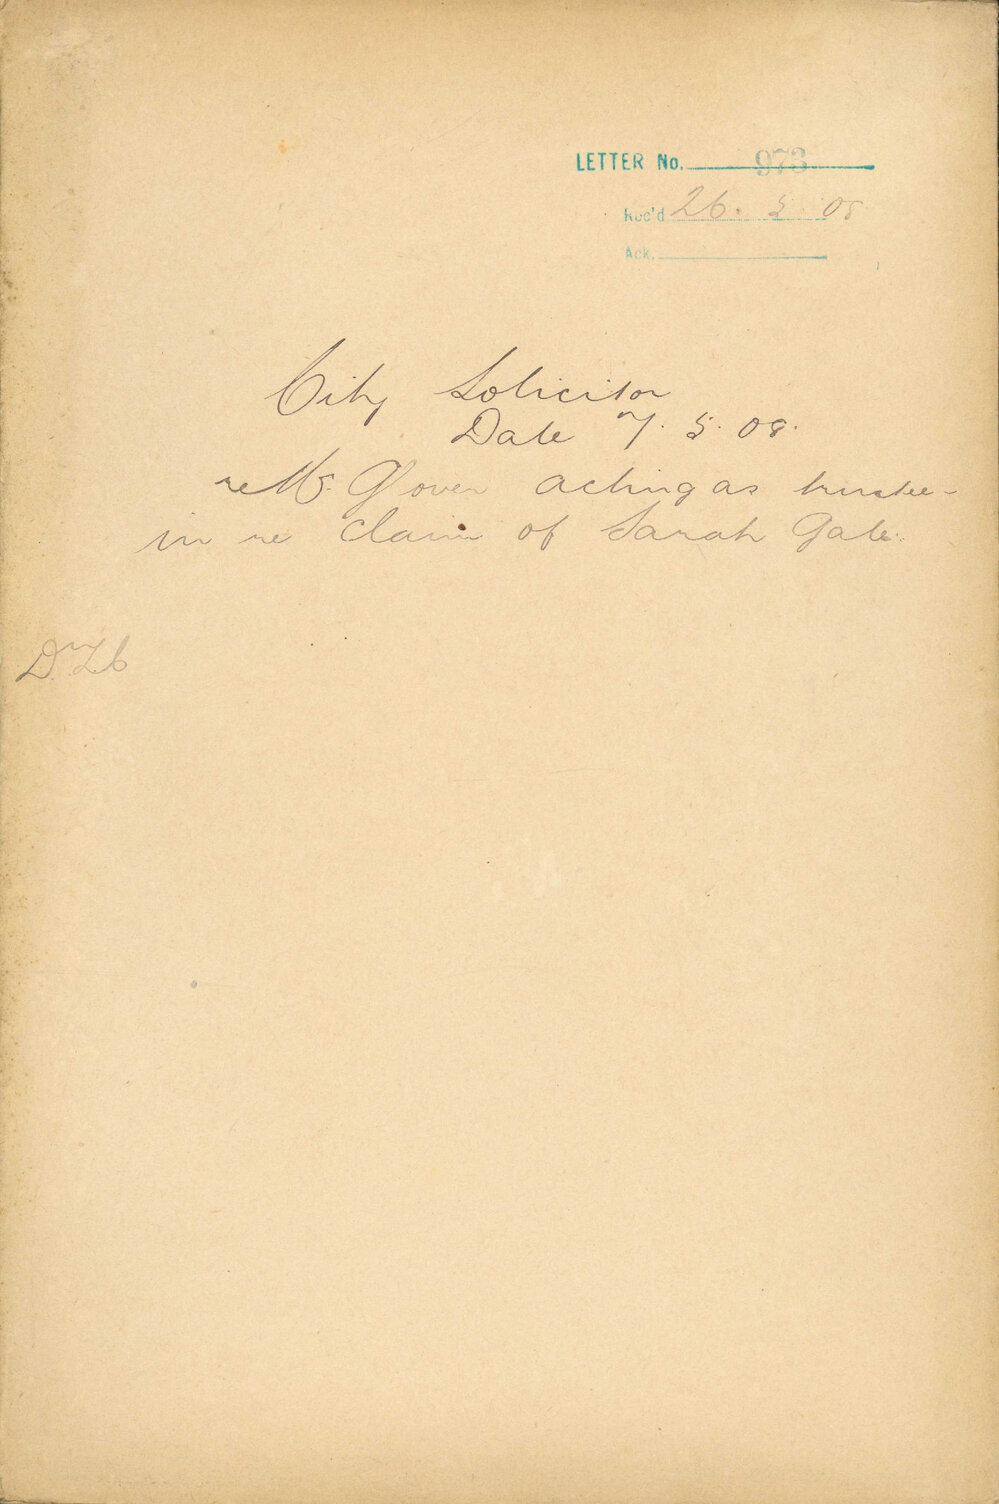 LETTER No. 973
Rec'd 26. 5. 08
Ack.
City Solicitor
Date 7. 5. 08.
re Mr. Glover acting as trustee -
in re Claim of Sarah Gale.